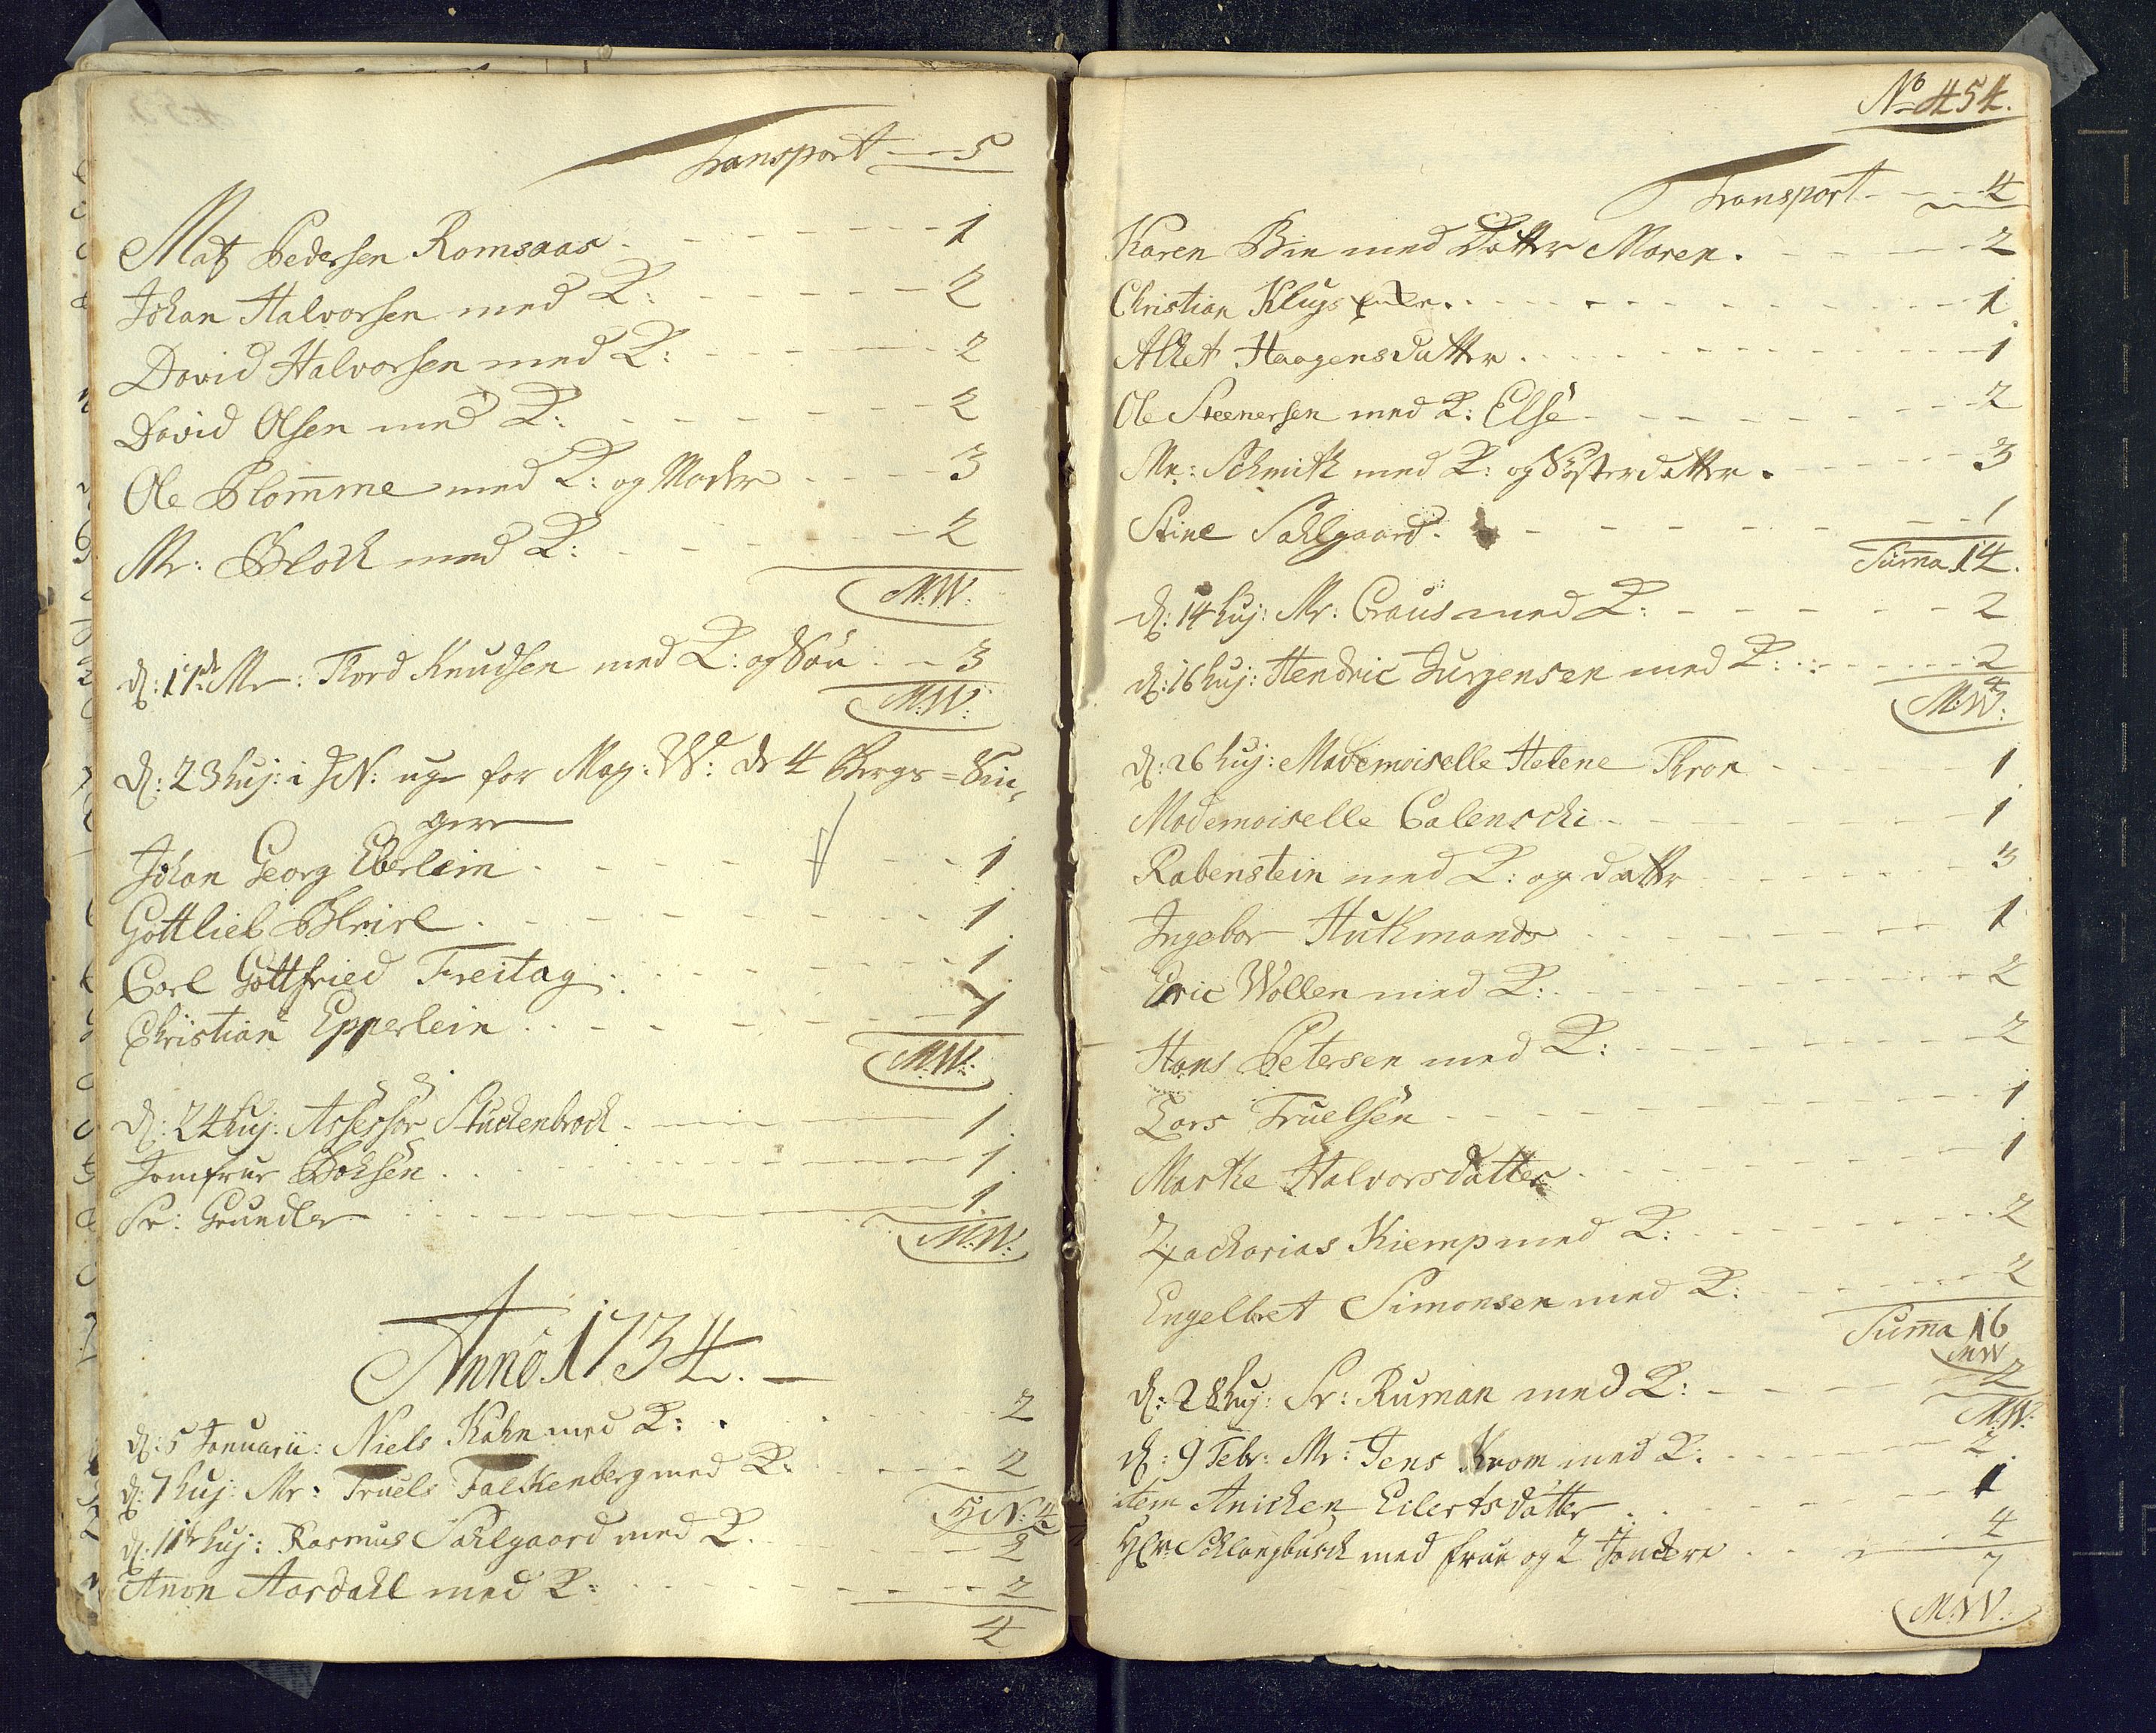 Transport 5
Matz Pedersen Romsaas 1
Johan Halvorsen med K: 2
David Halvorsen med K: 2
David Olsen med K: 2
Ole Blom̄me med K: og Moder 3
Mr: Block med K: 2
M:W:
d: 17de Mr: Thord Knudsen med K: og Søn 3
M:W:
d: 23 huj: i for Mag: W: de 4 Bergs=Sin,
gere
Johan Georg Eberlein 1
Gottlieb 1
Carl Gottfried Freitag 1
Christian Epperlein 1
M:W:
d: 24 huj: Assessor Stuckenbrock 1
Jomfrue Boksen 1
Sr: Grundler 1
M:W:
Anno 1734.
d: 5 Januarii: Niels Kahn med K: 2
d: 7 huj: Mr: Truels Falckenberg med K: 2
H:N: 4
d: 11te huj: Rasmus Sahlgaard med K. 2
Anon Aardahl med K: 2
4
No 454.
Transport 4
Karen Bin med Datter Maren. 2
Christian Klugs 1
Alhet Haagensdatter. 1
Ole Steenersen med K: Else 2
Mr: Schmith med K: og Systerdatter. 3
Stine Sahlgaard. 1
Sum̄a 14.
d: 14 huj: Mr: Craus med K: 2
d: 16 huj: Hendric Jurgensen med K: 2
4
M:W:
d: 26 huj: Mademoiselle Helene Thron 1
Mademoiselle Calenschi 1
Rabenstein med K: og datter 3
Ingebor Huthmands 1
Eric Wollen med K: 2
Hans Petersen med K: 2
Lars Truelsen 1
Marthe Halvorsdatter 1
Zacharias Kiemp med K: 2
Engelbret Simonsen med K: 2
Sum̄a 16
MW
d: 28 huj: Sr: Ruman med K: 2
M:W:
d: 9 Febr: Mr: Jens Krom med K: 2
item Anichen Eilertsdatter 1
Hr: Schlangbusch med frue og 2 4
7
M:W: